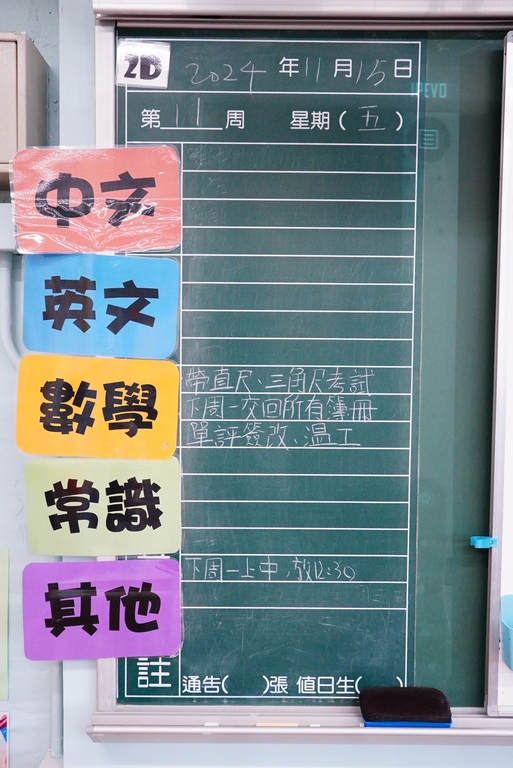 2D 2024年11月15日
IPEVO
第11周 星期(五)
中文
英文
數學
帶直尺、三角尺考試
下周一交回所有簿冊
單評簽改、溫工
常識
下周一上中,放12:30
其他
註
通告( )張 值日生( )